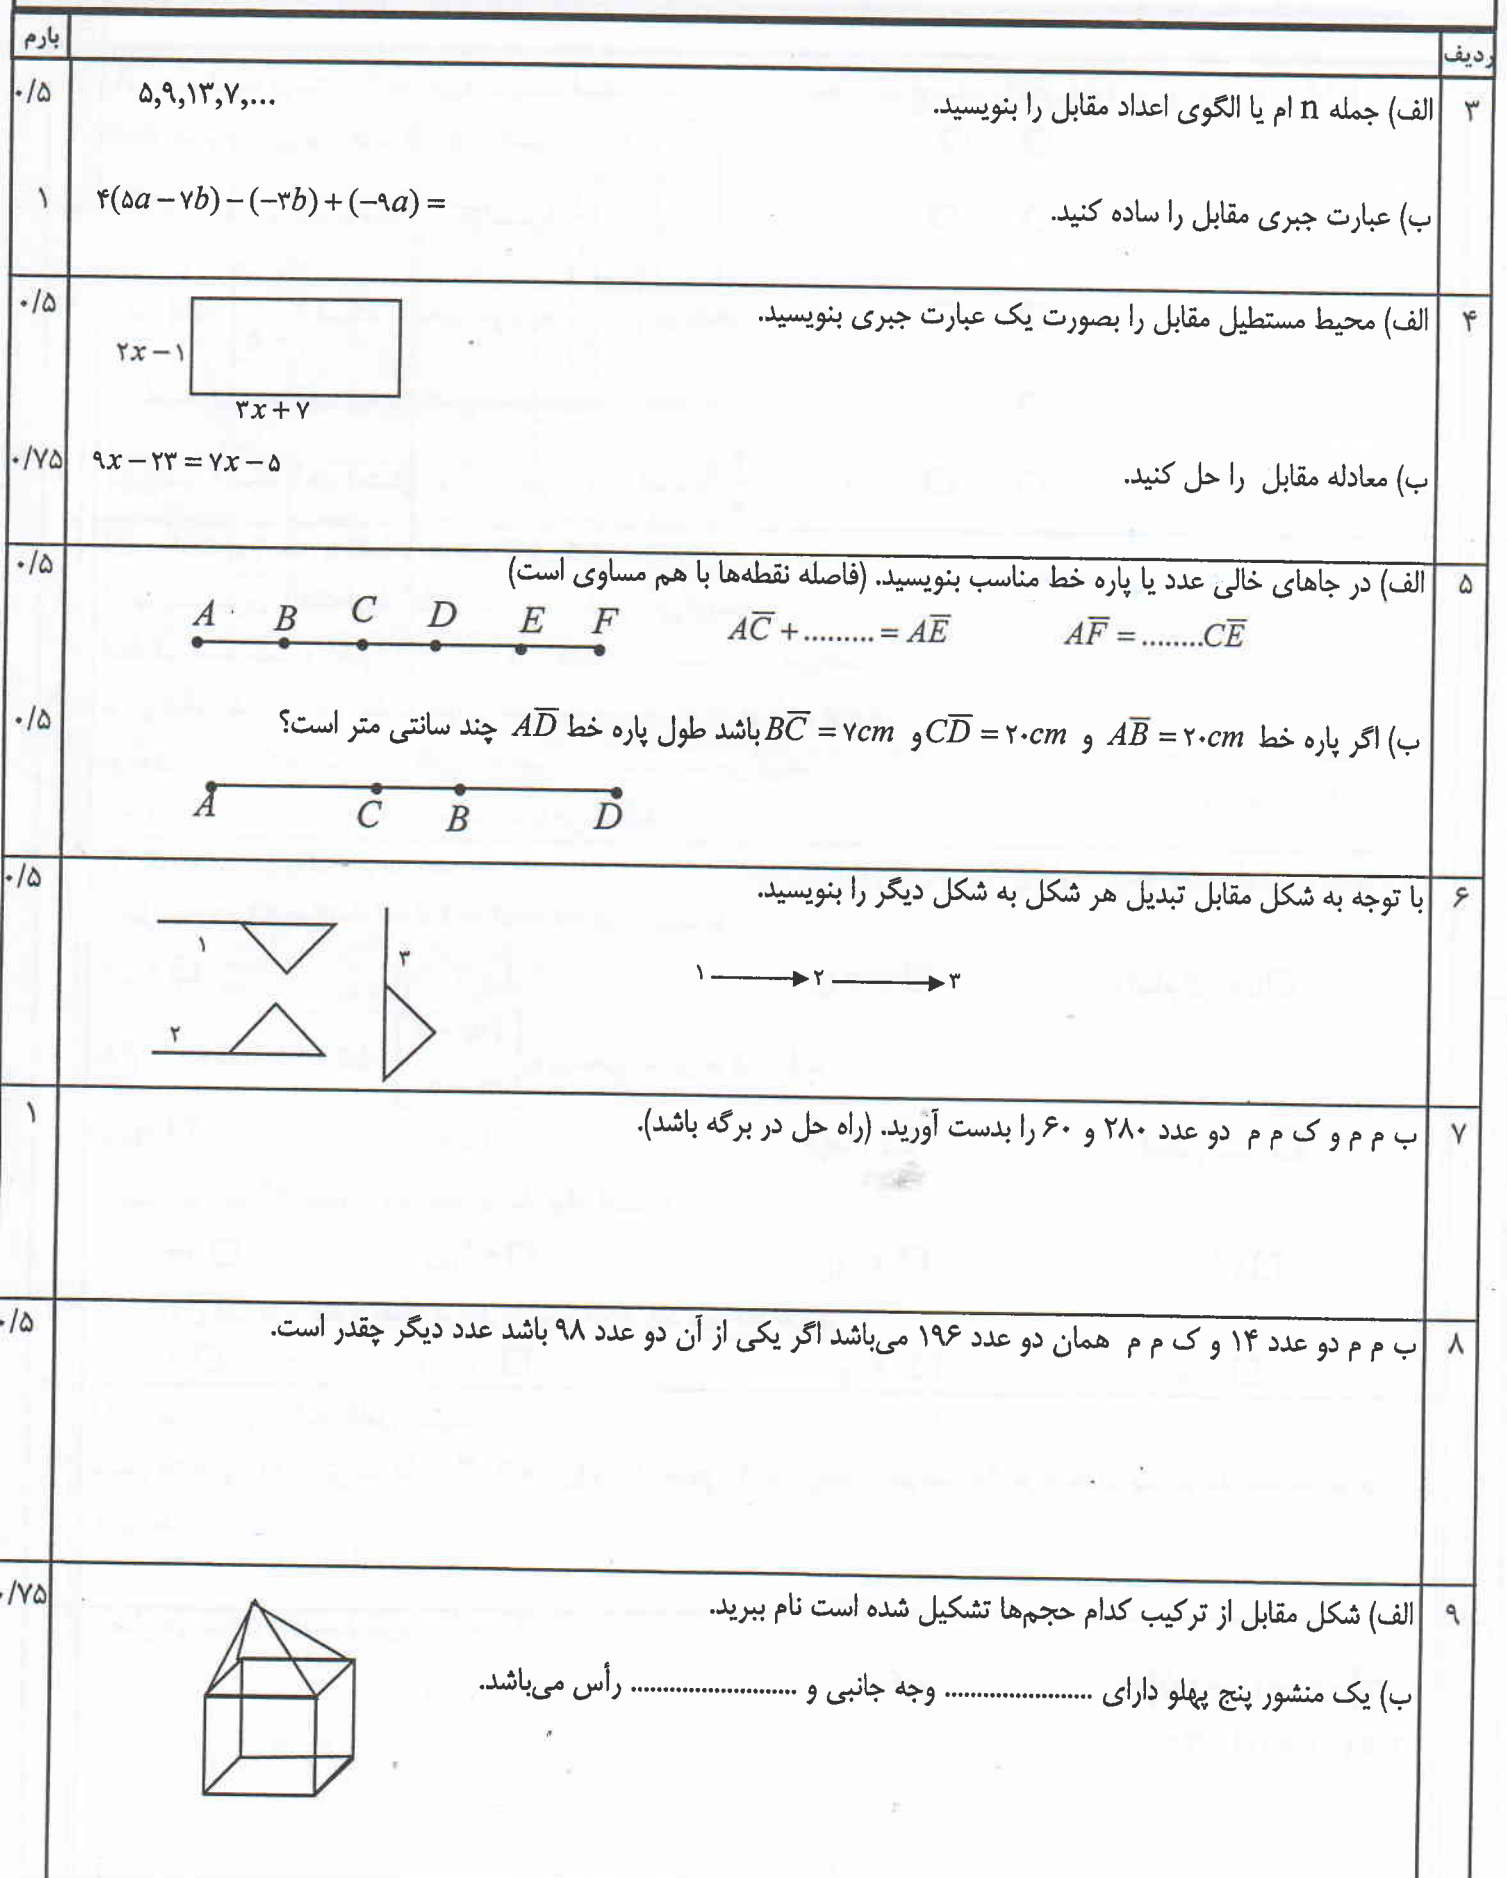 ردیف
بارم
۳ الف) جمله n ام یا الگوی اعداد مقابل را بنویسید. ۵,۹,۱۳,۷,... ۰/۵
ب) عبارت جبری مقابل را ساده کنید. ۴(۵a−۷b)−(−۳b)+(−۹a)= ۱
۴ الف) محیط مستطیل مقابل را بصورت یک عبارت جبری بنویسید. ۰/۵
۲x−۱
۳x+۷
ب) معادله مقابل را حل کنید. ۹x−۲۳=۷x−۵ ۰/۷۵
۵ الف) در جاهای خالی عدد یا پاره خط مناسب بنویسید. (فاصله نقطه‌ها با هم مساوی است) ۰/۵
A B C D E F
AC̅ + ......... = AE̅ AF̅ = ........CE̅
ب) اگر پاره خط AB̅ = ۲۰cm و CD̅ = ۲۰cm و BC̅ = ۷cm باشد طول پاره خط AD̅ چند سانتی متر است؟ ۰/۵
A C B D
۶ با توجه به شکل مقابل تبدیل هر شکل به شکل دیگر را بنویسید. ۰/۵
۱ ۳
۱ ⟶ ۲ ⟶ ۳
۲
۷ ب م م و ک م م دو عدد ۲۸۰ و ۶۰ را بدست آورید. (راه حل در برگه باشد). ۱
۸ ب م م دو عدد ۱۴ و ک م م همان دو عدد ۱۹۶ می‌باشد اگر یکی از آن دو عدد ۹۸ باشد عدد دیگر چقدر است. ۰/۵
۹ الف) شکل مقابل از ترکیب کدام حجم‌ها تشکیل شده است نام ببرید. ۰/۷۵
ب) یک منشور پنج پهلو دارای ....................... وجه جانبی و .......................... رأس می‌باشد.